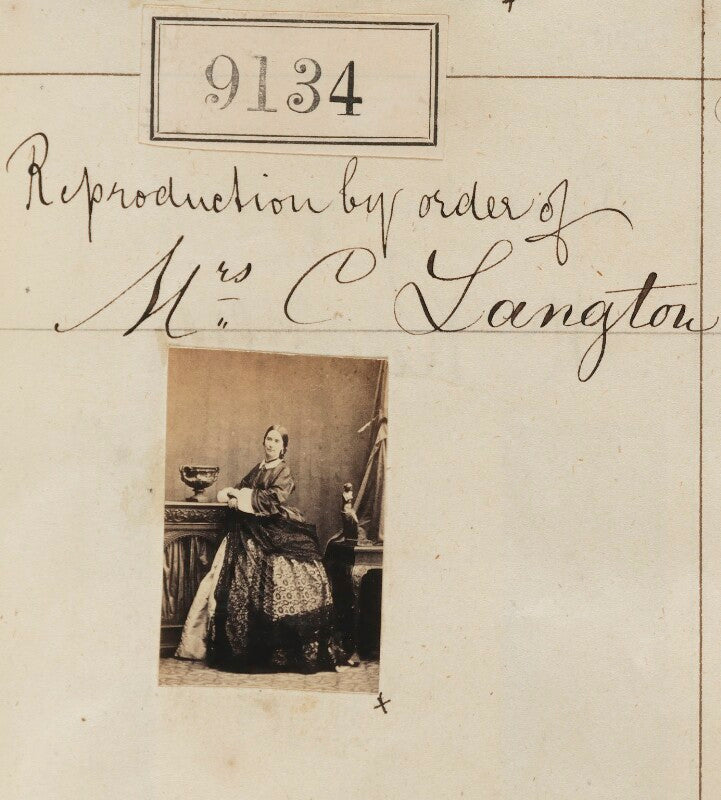 9134
Reproduction by order of
Mrs C Langton
x